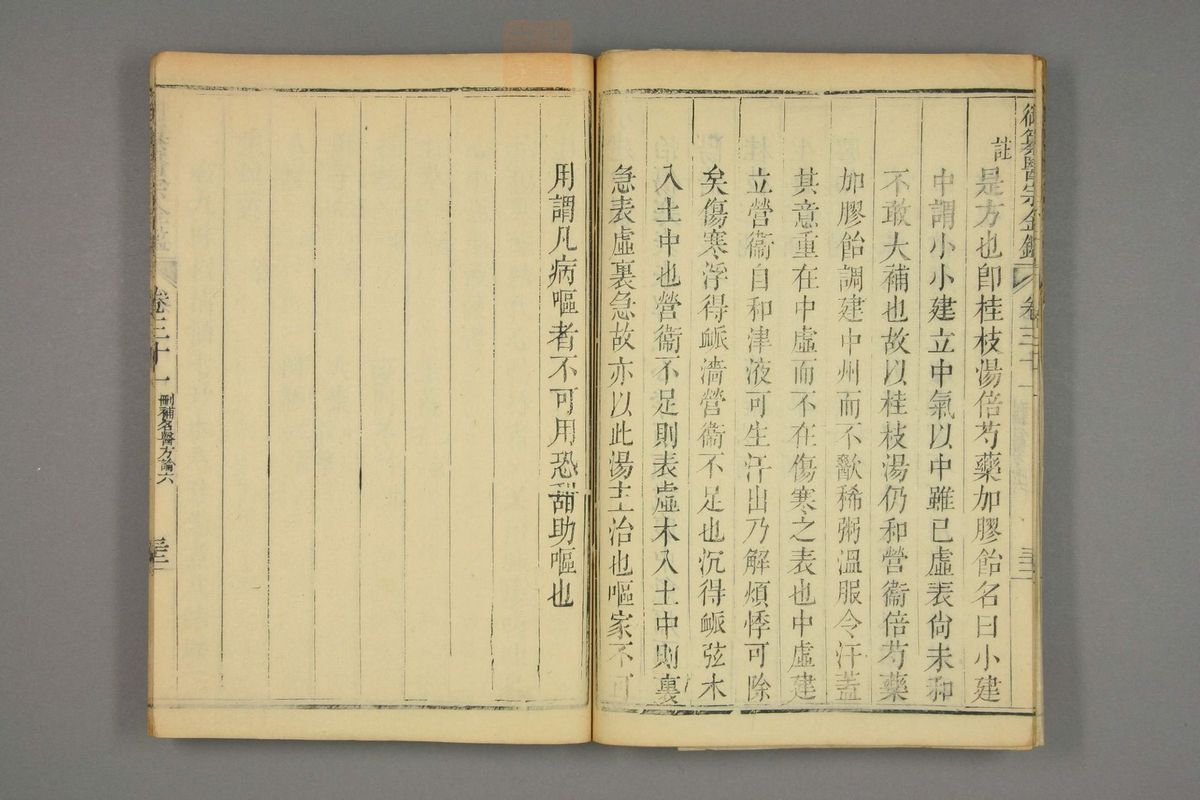 御纂醫宗金鑑 卷三十一
註
是方也卽桂枝湯倍芍藥加膠飴名曰小建
中謂小小建立中氣以中雖已虛表尙未和
不敢大補也故以桂枝湯仍和營衞倍芍藥
加膠飴調建中州而不歠稀粥溫服令汗蓋
其意重在中虛而不在傷寒之表也中虛建
立營衞自和津液可生汗出乃解煩悸可除
矣傷寒浮得䘑濇營衞不足也沉得䘑弦木
入土中也營衞不足則表虛木入土中則裏
急表虛裏急故亦以此湯主治也嘔家不可
用謂凡病嘔者不可用恐甜助嘔也
卷三十一 刪補名醫方論六